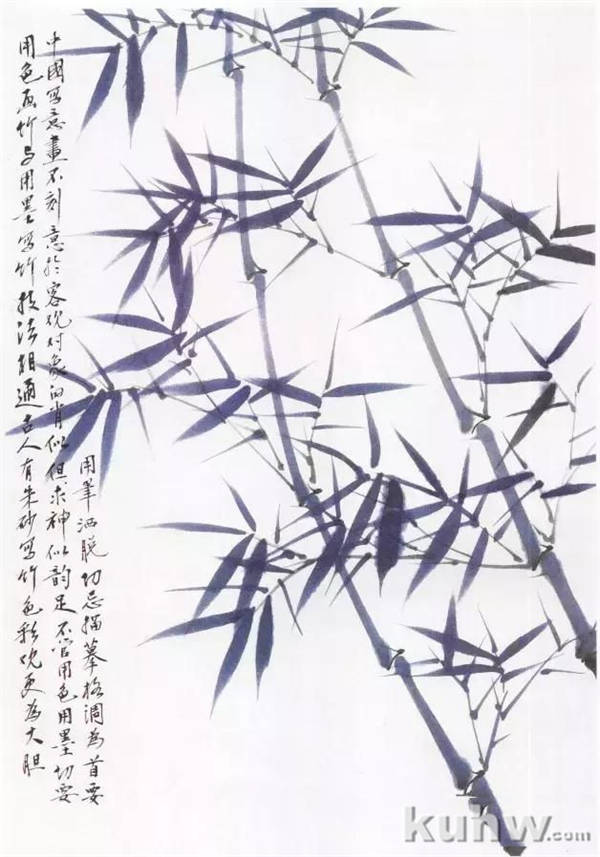 用色画竹与用墨写竹技法相通古人有朱砂写竹色彩观更为大胆
中國写意畫不刻意於客观对象的肖似但求神似韵足不管用色用墨切要
用筆洒脱切忌描摹格调为首要
kuhw.com